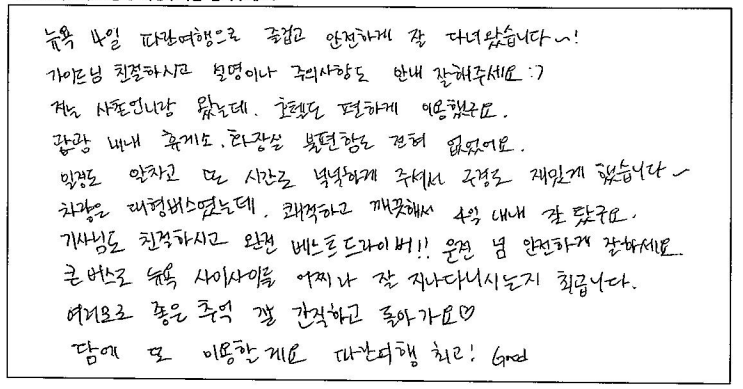 뉴욕 4일 따간여행으로 즐겁고 안전하게 잘 다녀왔습니다~!
가이드님 친절하시고 설명이나 주의사항도 안내 잘해주세요 :)
저는 사촌언니랑 왔는데, 호텔도 편하게 이용했구요.
관광 내내 휴게소, 화장실 불편함도 전혀 없었어요.
일정도 알차고 또 시간도 넉넉하게 주셔서 구경도 재밌게 했습니다~
차량은 대형버스였는데, 쾌적하고 깨끗해서 4일 내내 잘 탔구요.
기사님도 친절하시고 완전 베스트드라이버!! 운전 넘 안전하게 잘하세요.
큰버스로 뉴욕 사이사이를 어찌나 잘 지나다니시는지 최곱니다.
여러모로 좋은 추억 잘 간직하고 돌아가요♡
담에 또 이용할게요 따간여행 최고! Good